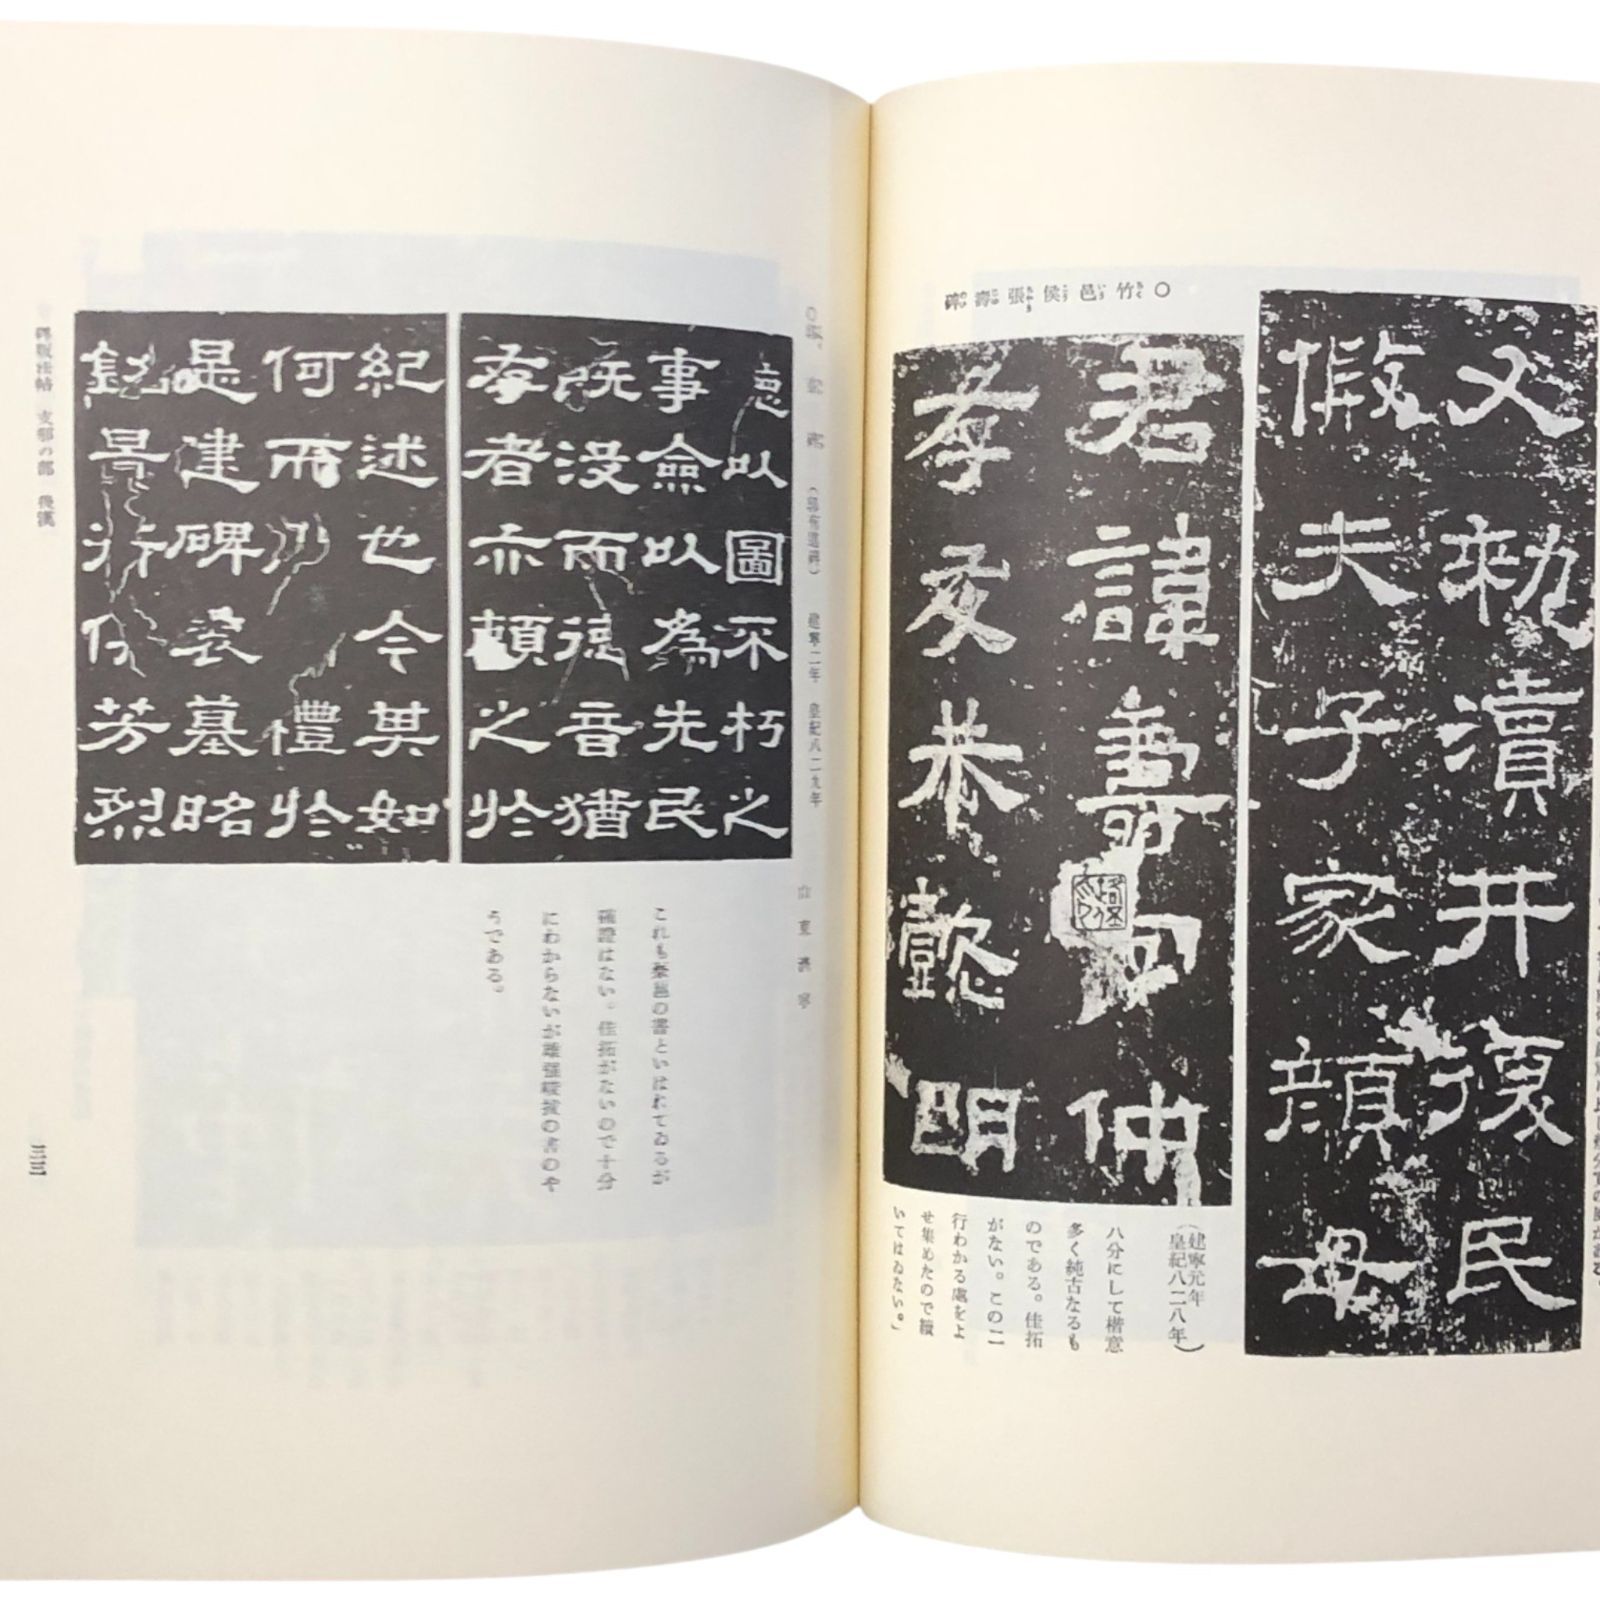 父勑瀆井復民
假夫子家顏母
○竹邑侯張壽碑
君諱壽字仲
孝友恭懿明
(建寧元年
皇紀八二八年)
八分にして楷意
多く純古なるも
のである。佳拓
がない。この二
行わかる處をよ
せ集めたので續
いてはゐない。」
(郭有道碑) 建寧二年 皇紀八二九年
山東濟寧
以圖不朽之
事僉以為先民
既没而德音猶
孝者亦賴之於
紀述也今其如
何而 禮於
是建碑表墓昭
銘景行 芳烈
これも蔡邕の書といはれてゐるが
確證はない。佳拓がないので十分
にわからないが雄强峻拔の書のや
うである。
碑版法帖 支那の部 後漢
三三